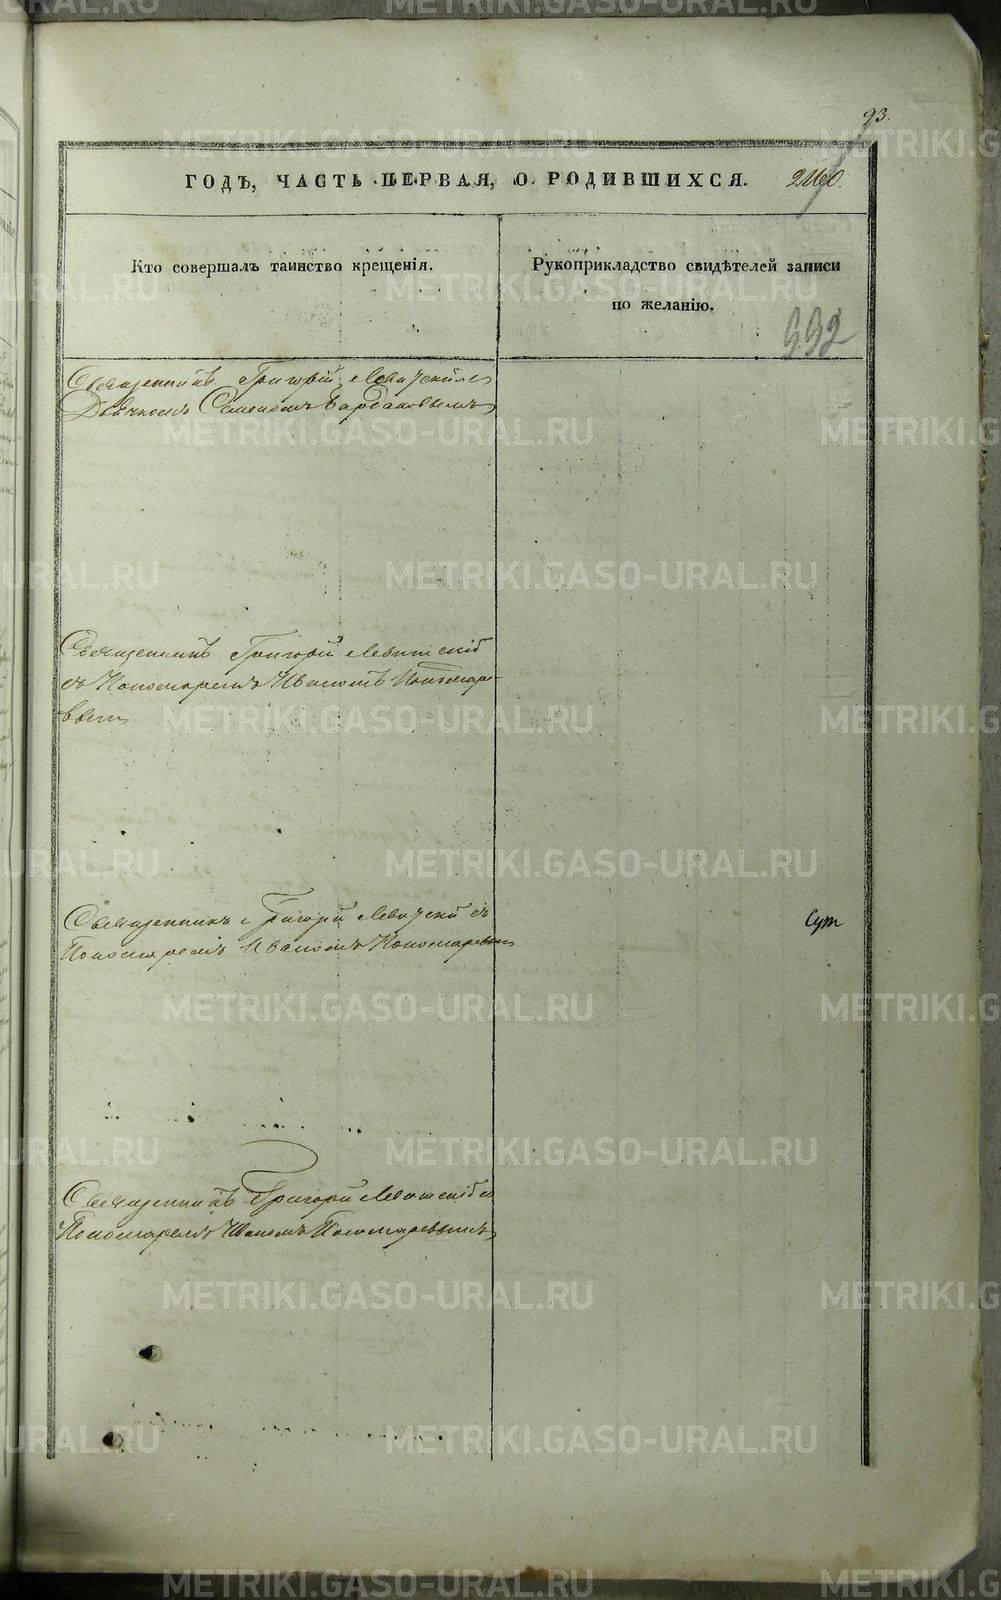 93.
ГОДЪ, ЧАСТЬ ПЕРВАЯ, О РОДИВШИХСЯ. 2460.
Кто совершалъ таинство крещенія.
Рукоприкладство свидѣтелей записи
по желанію.
992
Священникъ Григорій Левитскій съ
Дьячкомъ Семеномъ
Священникъ Григорій Левитскій
съ Пономаремъ Иваномъ Пономаре-
вымъ
Священникъ Григорій Левитскій съ
Пономаремъ Иваномъ Пономаревымъ
Священникъ Григорій Левитскій съ
Пономаремъ Иваномъ Пономаревымъ
METRIKI.GASO-URAL.RU